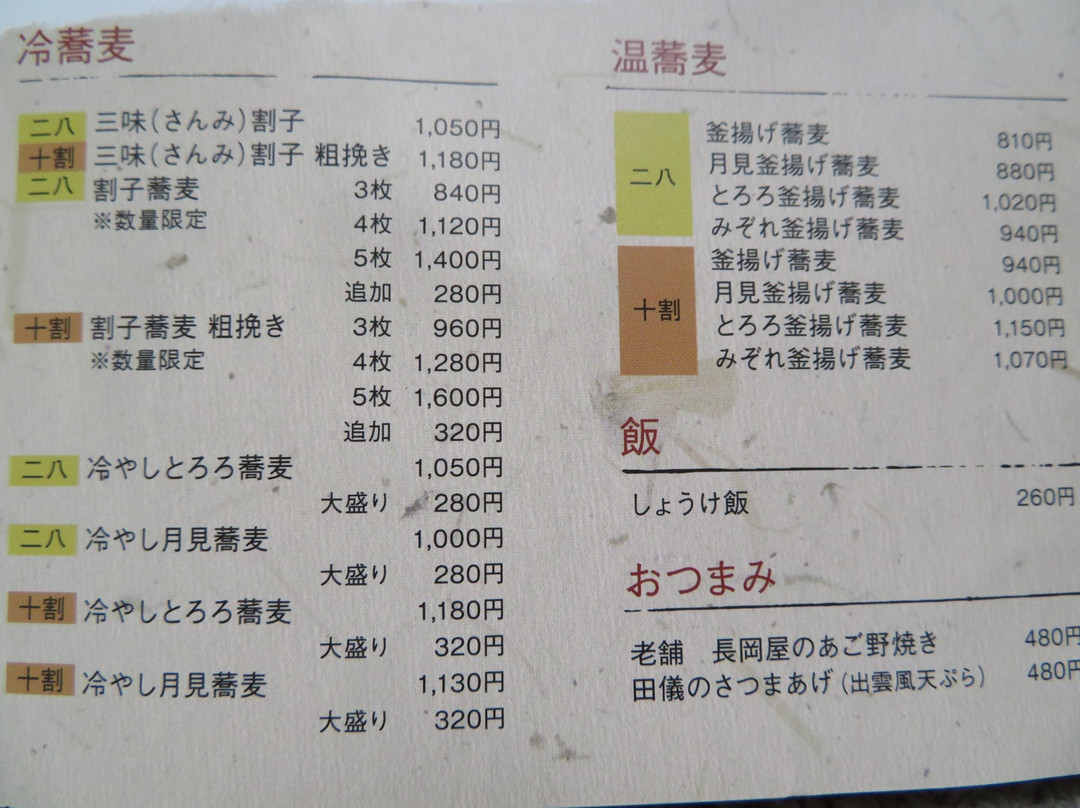 冷蕎麦
二八 三味(さんみ)割子 1,050円
十割 三味(さんみ)割子 粗挽き 1,180円
二八 割子蕎麦 3枚 840円
※数量限定 4枚 1,120円
5枚 1,400円
追加 280円
十割 割子蕎麦 粗挽き 3枚 960円
※数量限定 4枚 1,280円
5枚 1,600円
追加 320円
二八 冷やしとろろ蕎麦 1,050円
大盛り 280円
二八 冷やし月見蕎麦 1,000円
大盛り 280円
十割 冷やしとろろ蕎麦 1,180円
大盛り 320円
十割 冷やし月見蕎麦 1,130円
大盛り 320円
温蕎麦
二八
釜揚げ蕎麦 810円
月見釜揚げ蕎麦 880円
とろろ釜揚げ蕎麦 1,020円
みぞれ釜揚げ蕎麦 940円
十割
釜揚げ蕎麦 940円
月見釜揚げ蕎麦 1,000円
とろろ釜揚げ蕎麦 1,150円
みぞれ釜揚げ蕎麦 1,070円
飯
しょうけ飯 260円
おつまみ
老舗 長岡屋のあご野焼き 480円
田儀のさつまあげ(出雲風天ぷら) 480円